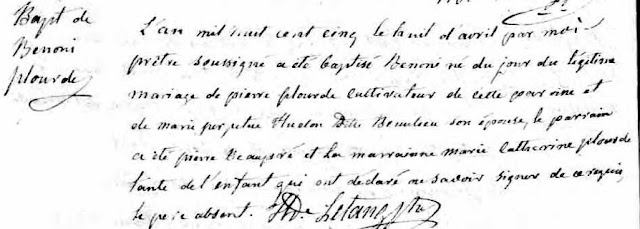 Bapt de
Benoni
plourde
L'an mil huit cent cinq le huit d'avril par moi
prêtre soussigné a été baptisé Benoni né du jour du légitime
mariage de pierre plourde cultivateur de cette paroisse et
de marie perpetue Hudon Dite Beaulieu son épouse, le parrain
a été pierre Beaupré et la marraine marie Catherine plourde
tante de l'enfant qui ont déclaré ne savoir signer de ce requis
le père absent. Letang ptre